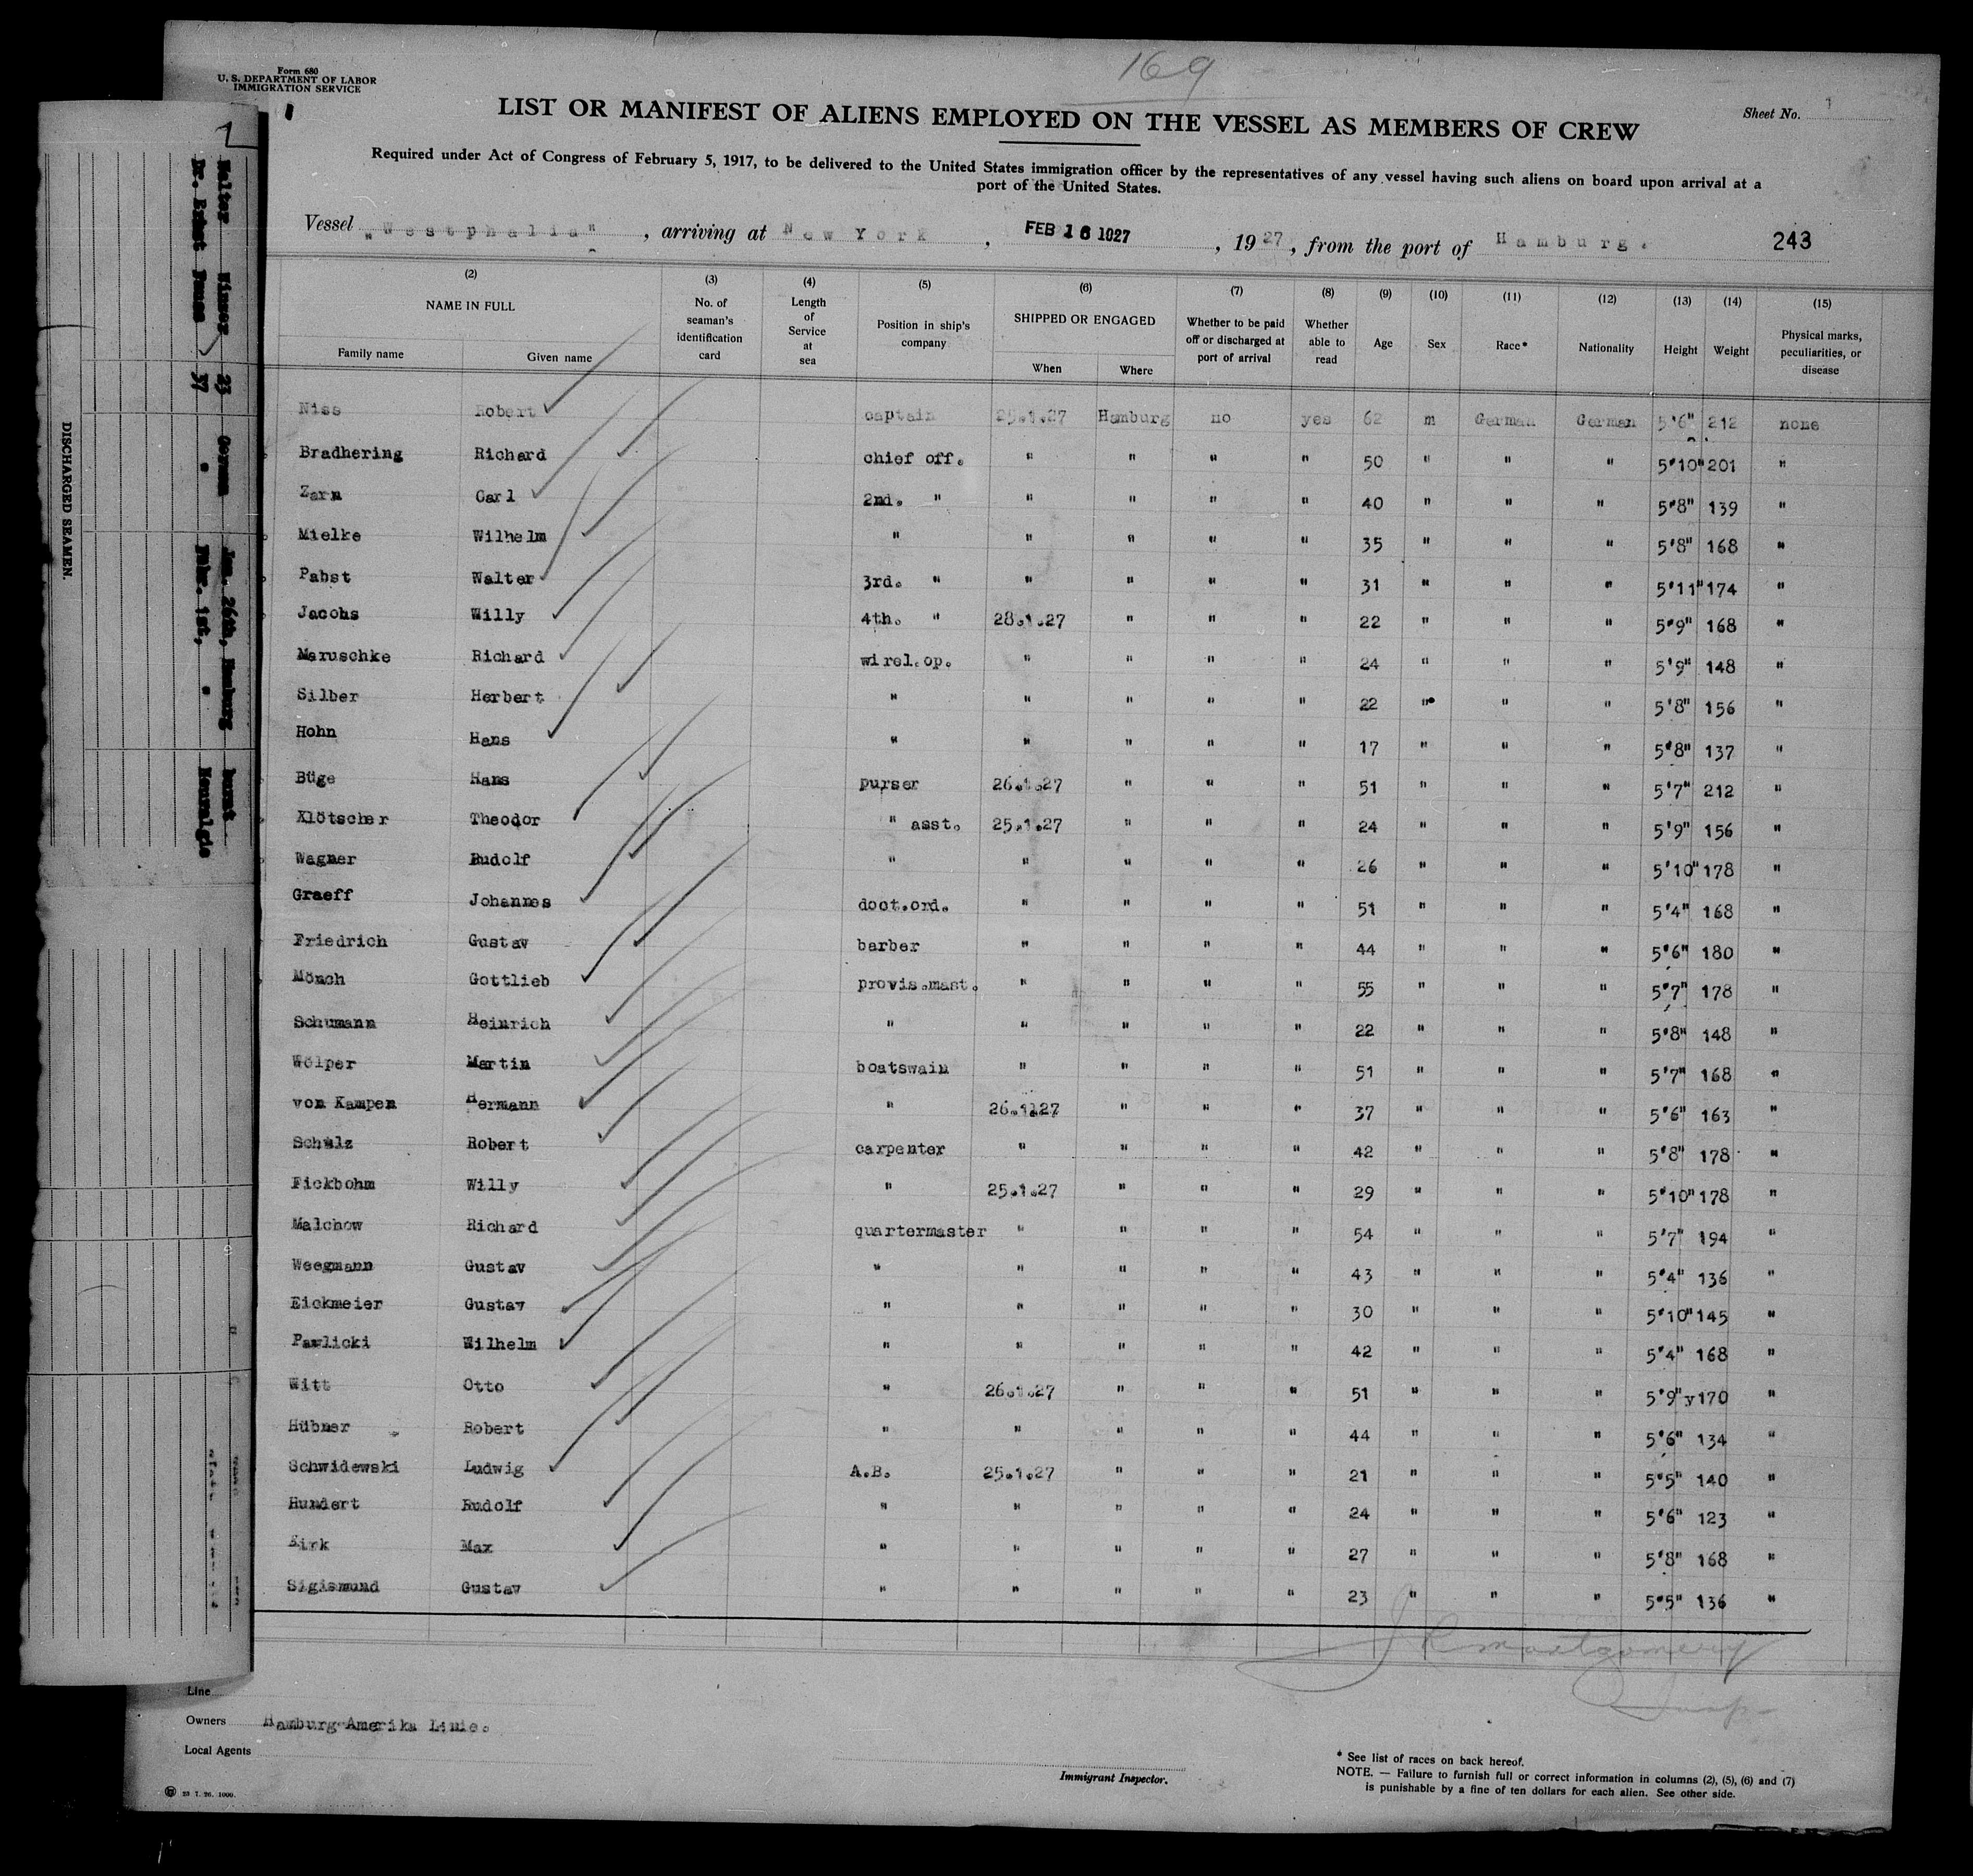 169
Form 680
U. S. DEPARTMENT OF LABOR
IMMIGRATION SERVICE
Sheet No. 1
LIST OR MANIFEST OF ALIENS EMPLOYED ON THE VESSEL AS MEMBERS OF CREW
Required under Act of Congress of February 5, 1917, to be delivered to the United States immigration officer by the representatives of any vessel having such aliens on board upon arrival at a
port of the United States.
Vessel „Westphalia", arriving at New York, FEB 16 1927, 1927, from the port of Hamburg. 243
(2) (3) (4) (5) (6) (7) (8) (9) (10) (11) (12) (13) (14) (15)
NAME IN FULL No. of seaman's identification card Length of Service at sea Position in ship's company SHIPPED OR ENGAGED Whether to be paid off or discharged at port of arrival Whether able to read Age Sex Race* Nationality Height Weight Physical marks, peculiarities, or disease
Family name Given name When Where
Niss Robert captain 25.1.27 Hamburg no yes 62 m German German 5'6" 212 none
Bradhering Richard chief off. " " " " 50 " " " 5'10" 201 "
Zarn Carl 2nd. " " " " " 40 " " " 5'8" 139 "
Mielke Wilhelm " " " " " 35 " " " 5'8" 168 "
Pabst Walter 3rd. " " " " " 31 " " " 5'11" 174 "
Jacohs Willy 4th. " 28.1.27 " " " 22 " " " 5'9" 168 "
Maruschke Richard wirel.op. " " " " 24 " " " 5'9" 148 "
Silber Herbert " " " " " 22 " " " 5'8" 156 "
Hohn Hans " " " " " 17 " " " 5'8" 137 "
Büge Hans purser 26.1.27 " " " 51 " " " 5'7" 212 "
Klötscher Theodor " asst. 25.1.27 " " " 24 " " " 5'9" 156 "
Wagner Rudolf " " " " " 26 " " " 5'10" 178 "
Graeff Johannes doct.ord. " " " " 51 " " " 5'4" 168 "
Friedrich Gustav barber " " " " 44 " " " 5'6" 180 "
Mönch Gottlieb provis.mast. " " " " 55 " " " 5'7" 178 "
Schumann Heinrich " " " " " 22 " " " 5'8" 148 "
Wölper Martin boatswain " " " " 51 " " " 5'7" 168 "
von Kampen Hermann " 26.1.27 " " " 37 " " " 5'6" 163 "
Schulz Robert carpenter " " " " 42 " " " 5'8" 178 "
Fickbohm Willy " 25.1.27 " " " 29 " " " 5'10" 178 "
Malchow Richard quartermaster " " " " 54 " " " 5'7" 194 "
Weegmann Gustav " " " " " 43 " " " 5'4" 136 "
Eickmeier Gustav " " " " " 30 " " " 5'10" 145 "
Pawlicki Wilhelm " " " " " 42 " " " 5'4" 168 "
Witt Otto " 26.1.27 " " " 51 " " " 5'9" y170 "
Hübner Robert " " " " " 44 " " " 5'6" 134 "
Schwidewski Ludwig A.B. 25.1.27 " " " 21 " " " 5'5" 140 "
Hundert Rudolf " " " " " 24 " " " 5'6" 123 "
Max " " " " " 27 " " " 5'8" 168 "
Sigismund Gustav " " " " " 23 " " " 5'5" 136 "
J R Montgomery
Insp
Line
Owners Hamburg-Amerika Linie.
Local Agents
Immigrant Inspector.
* See list of races on back hereof.
NOTE. — Failure to furnish full or correct information in columns (2), (5), (6) and (7)
is punishable by a fine of ten dollars for each alien. See other side.
23 7. 26. 1000.
1
Walter 23 German Jan. 26th, Hamburg
Dr. Ernst 37 " 1st, "
DISCHARGED SEAMEN.